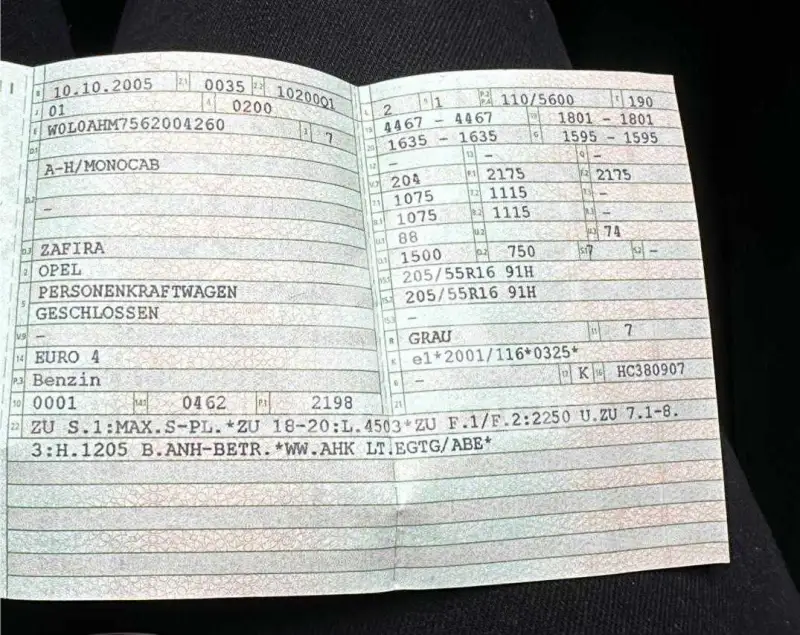 B 10.10.2005 2.1 0035 2.2 1020001
J 01 4 0200
E W0L0AHM7562004260 3 7
D.1
A-H/MONOCAB
D.2 –
D.3 ZAFIRA
2 OPEL
5 PERSONENKRAFTWAGEN
GESCHLOSSEN
V.9 –
14 EURO 4
P.3 Benzin
10 0001 14.1 0462 P.1 2198
22 ZU S.1:MAX.S-PL.*ZU 18-20:L.4503*ZU F.1/F.2:2250 U.ZU 7.1-8.
3:H.1205 B.ANH-BETR.*WW.AHK LT.EGTG/ABE*
L 2 9 1 P.2 P.4 110/5600 T 190
18 4467 – 4467 19 1801 – 1801
20 1635 – 1635 G 1595 – 1595
12 – 13 – Q –
V.7 204 F.1 2175 F.2 2175
7.1 1075 7.2 1115 7.3 –
8.1 1075 8.2 1115 8.3 –
U.1 88 U.2 U.3 74
O.1 1500 O.2 750 S.1 7 S.2 –
15.1 205/55R16 91H
15.2 205/55R16 91H
15.3 –
R GRAU 11 7
K e1*2001/116*0325*
6 – 17 K 16 HC380907
21